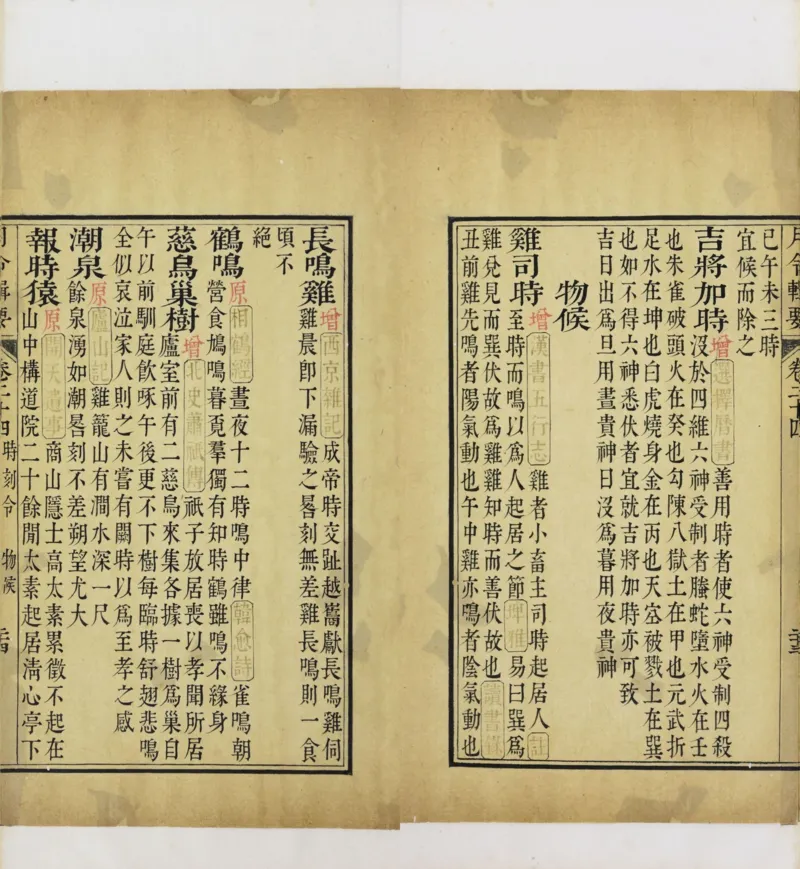 月令輯要 卷二十四
巳午未三時
宜候而除之
吉將加時增選擇曆書善用時者使六神受制四殺
沒於四維六神受制者螣蛇墮水火在壬
也朱雀破頭火在癸也勾陳八獄土在甲也元武折
足水在坤也白虎燒身金在丙也天空被戮土在巽
也如不得六神悉伏者宜就吉將加時亦可致
吉日出爲旦用晝貴神日沒爲暮用夜貴神
物候
雞司時增漢書五行志雞者小畜主司時起居人註
至時而鳴以爲人起居之節埤雅易曰巽爲
雞兌見而巽伏故爲雞雞知時而善伏故也
丑前雞先鳴者陽氣動也午中雞亦鳴者陰氣動也
長鳴雞增西京雜記成帝時交趾越嶲獻長鳴雞伺
雞晨卽下漏驗之晷刻無差雞長鳴則一食
頃不
絕
鶴鳴原相鶴經晝夜十二時鳴中律韓愈詩雀鳴朝
營食鳩鳴暮覓羣獨有知時鶴雖鳴不緣身
慈烏巢樹增北史蕭祇傳祇子放居喪以孝聞所居
廬室前有二慈烏來集各據一樹爲巢自
午以前馴庭飮啄午後更不下樹每臨時舒翅悲鳴
全似哀泣家人則之未嘗有闕時以爲至孝之感
潮泉原廬山記雞籠山有澗水深一尺
餘泉湧如潮晷刻不差朔望尤大
報時猿原開天遺事商山隱士高太素累徵不起在
山中構道院二十餘閒太素起居淸心亭下
月令輯要 卷二十四 時刻令 物候